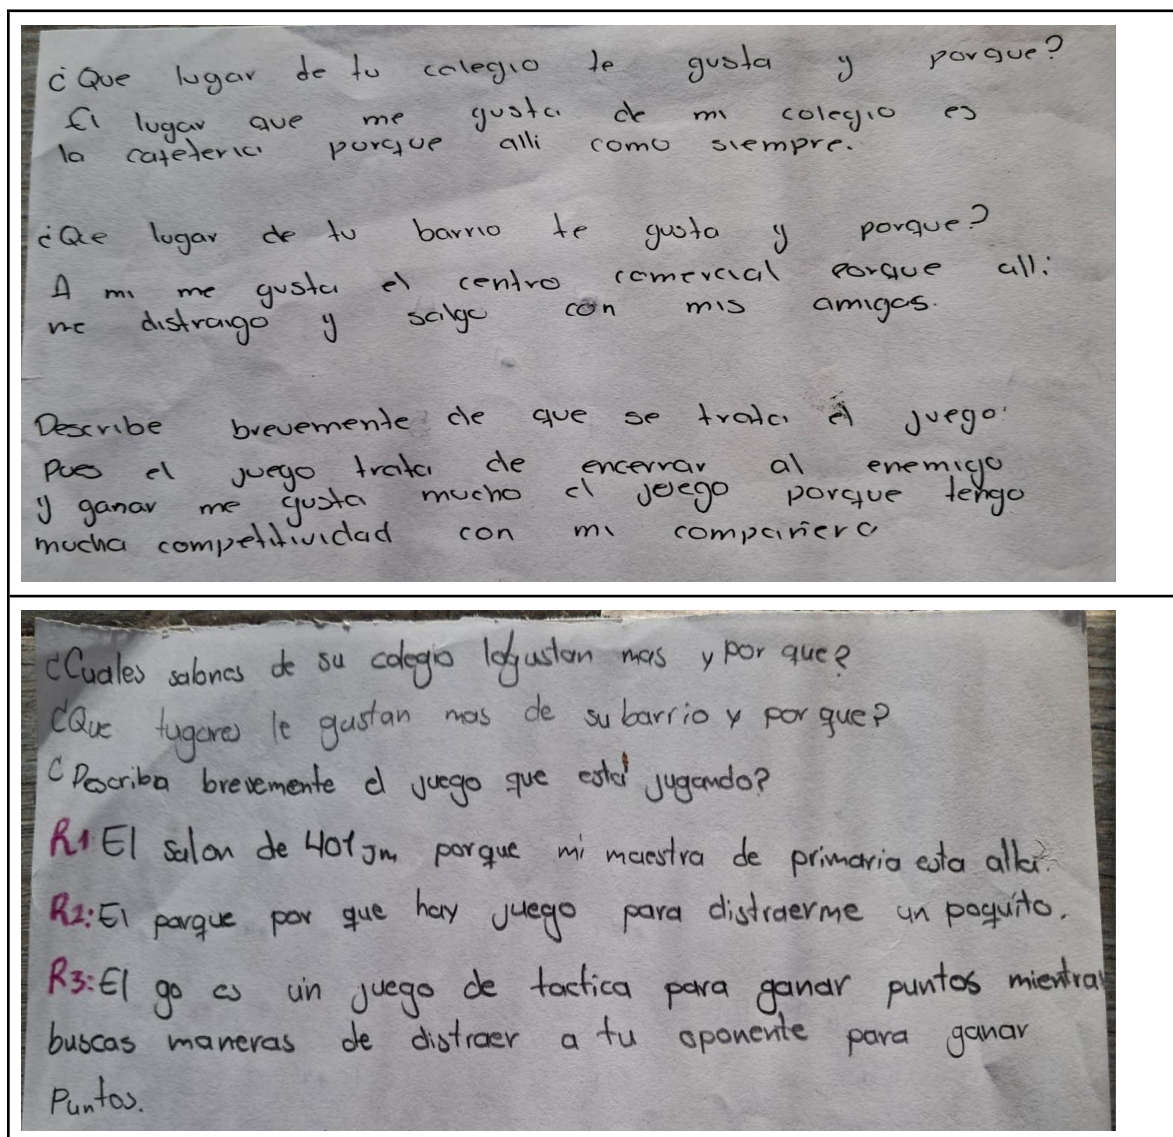 ¿Que lugar de tu colegio te gusta y porque?
El lugar que me gusta de mi colegio es
la cafeteria porque alli como siempre.
¿Que lugar de tu barrio te gusta y porque?
A mi me gusta el centro comercial porque alli
me distraigo y salgo con mis amigas.
Describe brevemente de que se trata el juego:
Pues el juego trata de encerrar al enemigo
y ganar me gusta mucho el juego porque tengo
mucha competitividad con mi compañero
¿Cuales salones de su colegio le gustan mas y por que?
¿Que lugares le gustan mas de su barrio y por que?
¿Describa brevemente el juego que está jugando?
R1 El salon de 401 jm porque mi maestra de primaria esta alla.
R2: El parque por que hay juego para distraerme un poquito.
R3: El go es un juego de tactica para ganar puntos mientras
buscas maneras de distraer a tu oponente para ganar
Puntos.